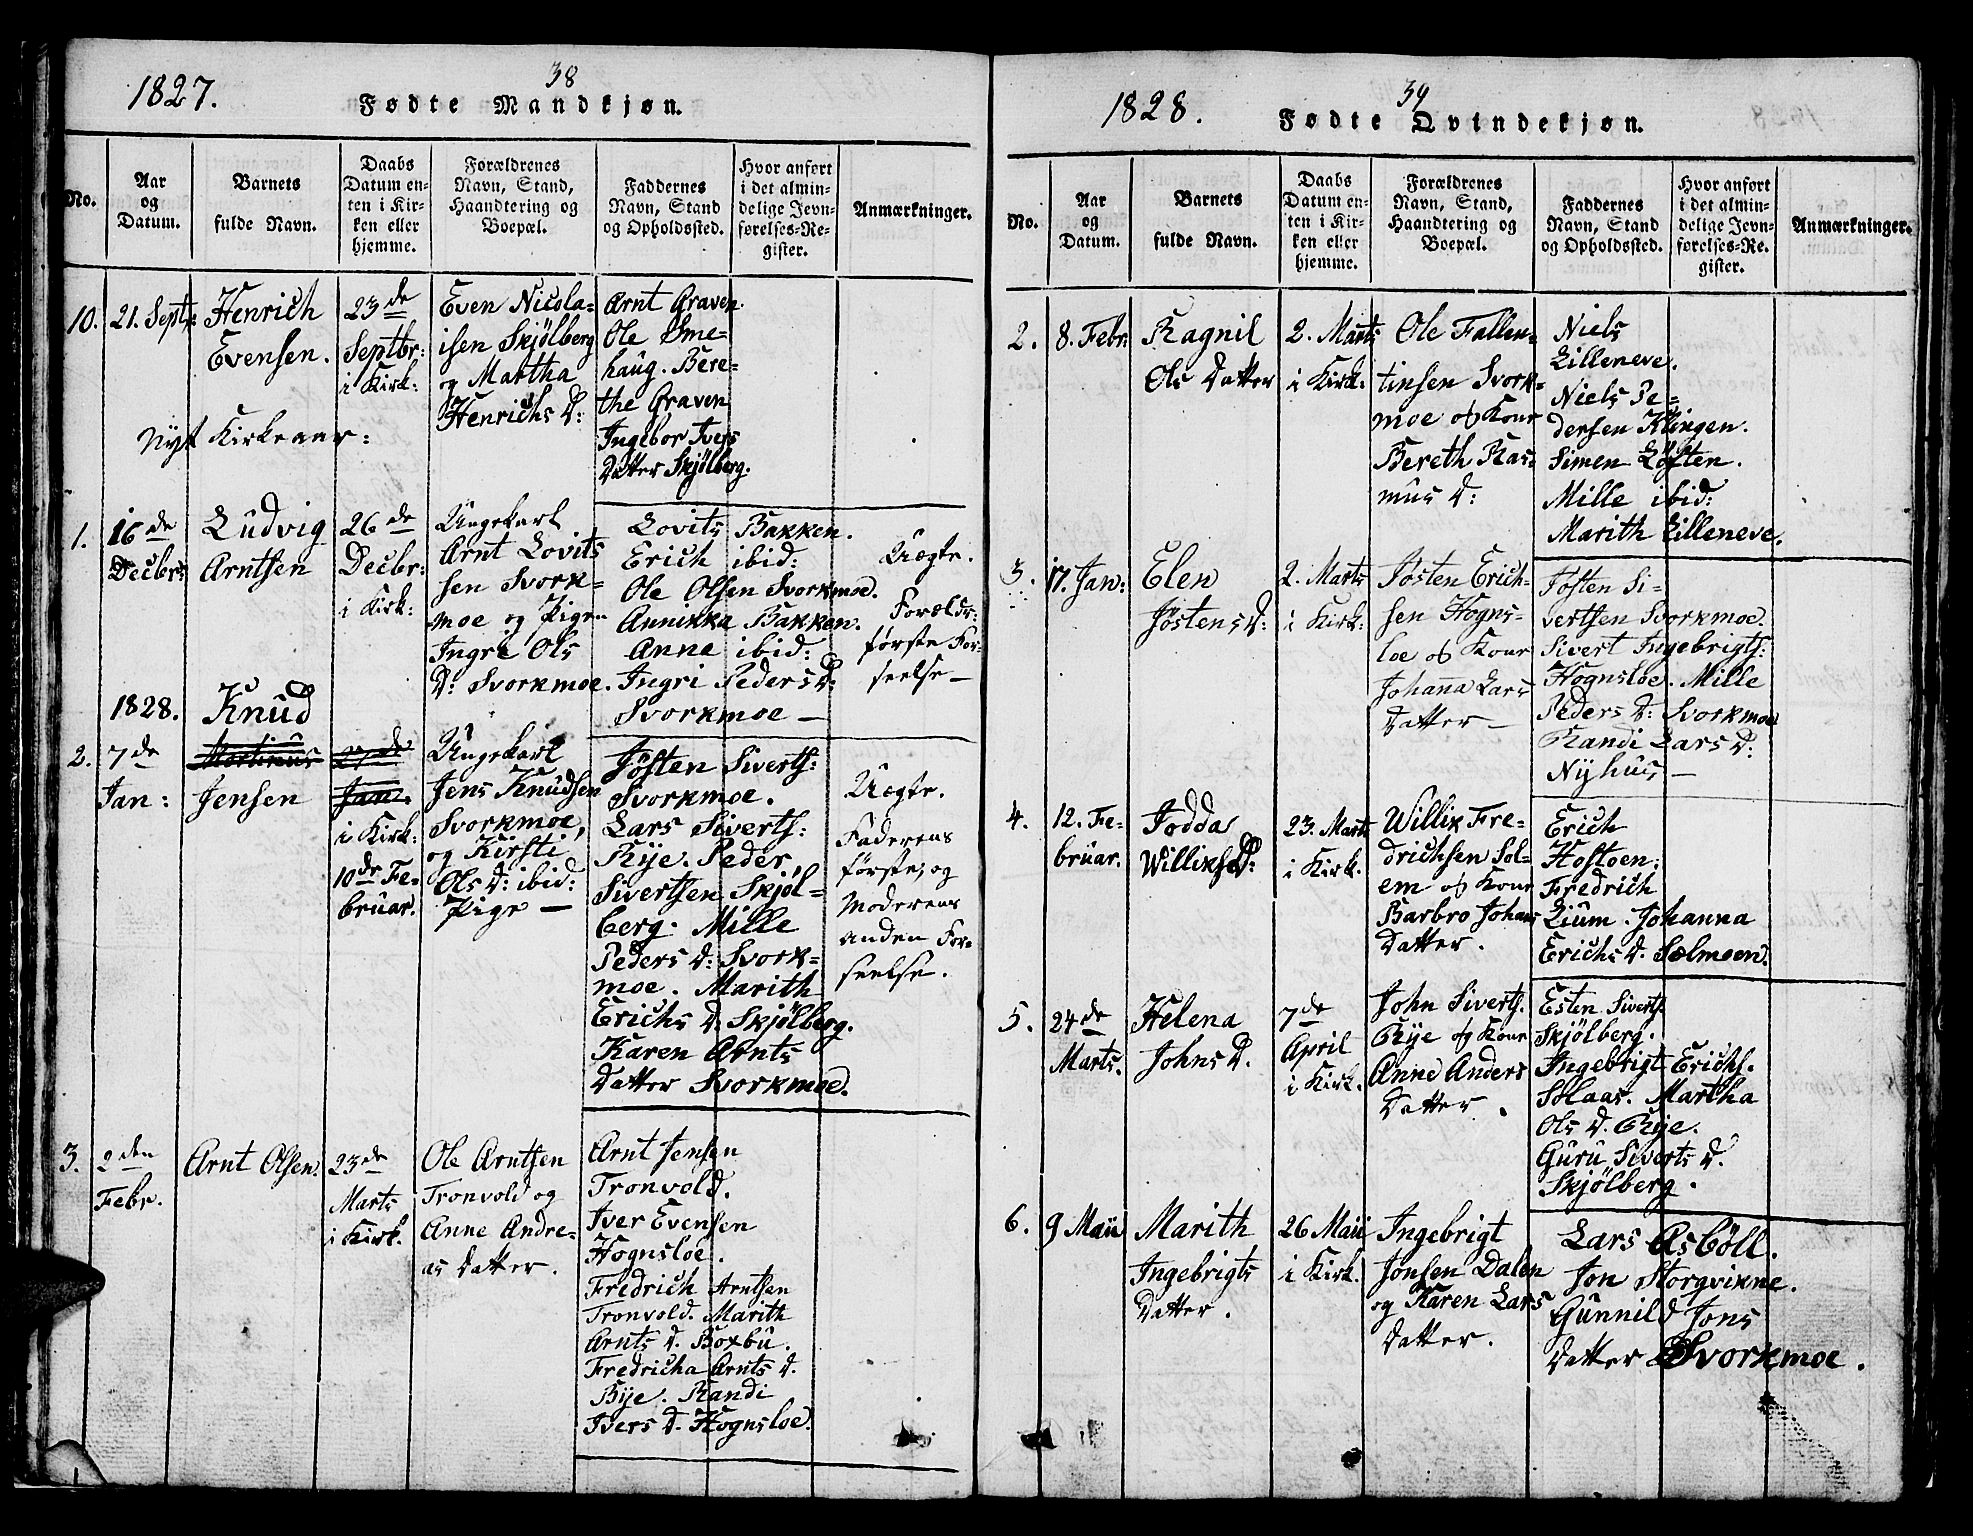 38
1827.
Fødte Mandkjøn.
No.
Aar
og
Datum.
Barnets
fulde Navn.
Daabs
Datum en-
ten i Kir-
ken eller
hjemme.
Forældrenes
Navn, Stand,
Haandtering og
Boepæl.
Faddernes
Navn, Stand
og Opholdssted.
Hvor anført
i det almin-
delige Jevn-
førelses-Re-
gister.
Anmærkninger.
10.
21. Septr:
Henrich
Evensen.
23de
Septbr:
i Kirk:
Even Nicola=
isen Skjölberg
og Martha
Henrichs D:
Arnt Graven.
Ole Sme=
haug. Bere=
the Graven
Ingebor Ivers
Datter Skjölberg.
Nyt Kirkeaar:
1.
16de
Decbr:
Ludvig
Arntsen
26de
Decbr:
i Kirk:
Ungekarl
Arnt Lovits
sen Svork=
moe og Pigen
Ingri Ols
D: Svorkmoe.
Lovits Bakken.
Erich ibid:
Ole Olsen Svorkmoe.
Annikka Bakken.
Anne ibid:
Ingri Peders D:
Svorkmoe —
Uægte.
Forældr:
første For-
seelse —
1828.
2.
7de
Jan:
Knud
Martinus
Jensen
27de
Jan.
i Kirk:
10de Fe-
bruar.
Ungekarl
Jens Knudsen
Svorkmoe,
og Kirsti
Ols D: ibid:
Pige —
Jösten Siverts:
Svorkmoe.
Lars Siverts:
Rye. Peder
Sivertsen Skjöl-
berg. Mille
Peders D: Svork-
moe. Marith
Erichs D. Skjölberg.
Karen Arnts
Datter Svorkmoe.
Uægte.
Faderens
første, og
Moderens
anden For-
seelse.
3.
2den
Febr.
Arnt Olsen.
23de
Marts
i Kirk.
Ole Arntsen
Tronvold og
Anne Andre=
as Datter.
Arnt Jensen
Tronvold.
Iver Evensen
Hognsloe.
Fredrich Arntsen
Tronvold. Marith
Arnts D. Boxbu.
Fredricha Arnts D.
Bye. Randi
Ivers D. Hognsloe.
39
1828.
Fødte Qvindekjøn.
No.
Aar
og
Datum.
Barnets
fulde Navn.
Daabs
Datum en-
ten i Kir-
ken eller
hjemme.
Forældrenes
Navn, Stand,
Haandtering og
Boepæl.
Faddernes
Navn, Stand
og Opholdssted.
Hvor anført
i det almin-
delige Jevn-
førelses-Re-
gister.
Anmærkninger.
2.
8. Febr:
Ragnil
Ols Datter
2. Marts
i Kirk:
Ole Fallen=
tinsen Svork=
moe og Kone
Bereth Ras=
mus D:
Niels
Lilleneve.
Niels Pe=
dersen Klingen.
Simen Löften.
Mille ibid:
Marith Lilleneve.
3.
17. Jan:
Elen
Jöstens D:
2. Marts
i Kirk:
Jösten Erich-
sen Hogns-
loe og Kone
Johanna Lars
Datter —
Jösten Si-
vertsen Svorkmoe.
Sivert Ingebrigts:
Hognsloe. Mille
Peders D: Svorkmoe
Randi Lars D:
Nyhus —
4.
12. Fe-
bruar.
Jodda
Williks D:
23. Marts
i Kirk.
Willix Fre-
drichsen Sol-
em og Kone
Barbro Johans
Datter.
Erich
Hostoen.
Fredrich
Lium. Johanna
Erichs D. Solmoen.
5.
24de
Marts.
Helena
Johns D.
7de
April
i Kirk.
John Siverts.
Rye og Kone
Anne Anders
Datter.
Esten Siverts.
Skjölberg.
Ingebrigt Erichs.
Aaas. Martha
Ols D. Rye.
Guru Siverts D.
Skjölberg.
6.
9 Maii
Marith
Ingebrigts
Datter.
26 Maii
i Kirk.
Ingebrigt
Jonsen Dalen
og Karen Lars
Datter.
Lars Asböll.
Jon Storgvikne.
Gunnild Jons
Datter Svorkmoe.